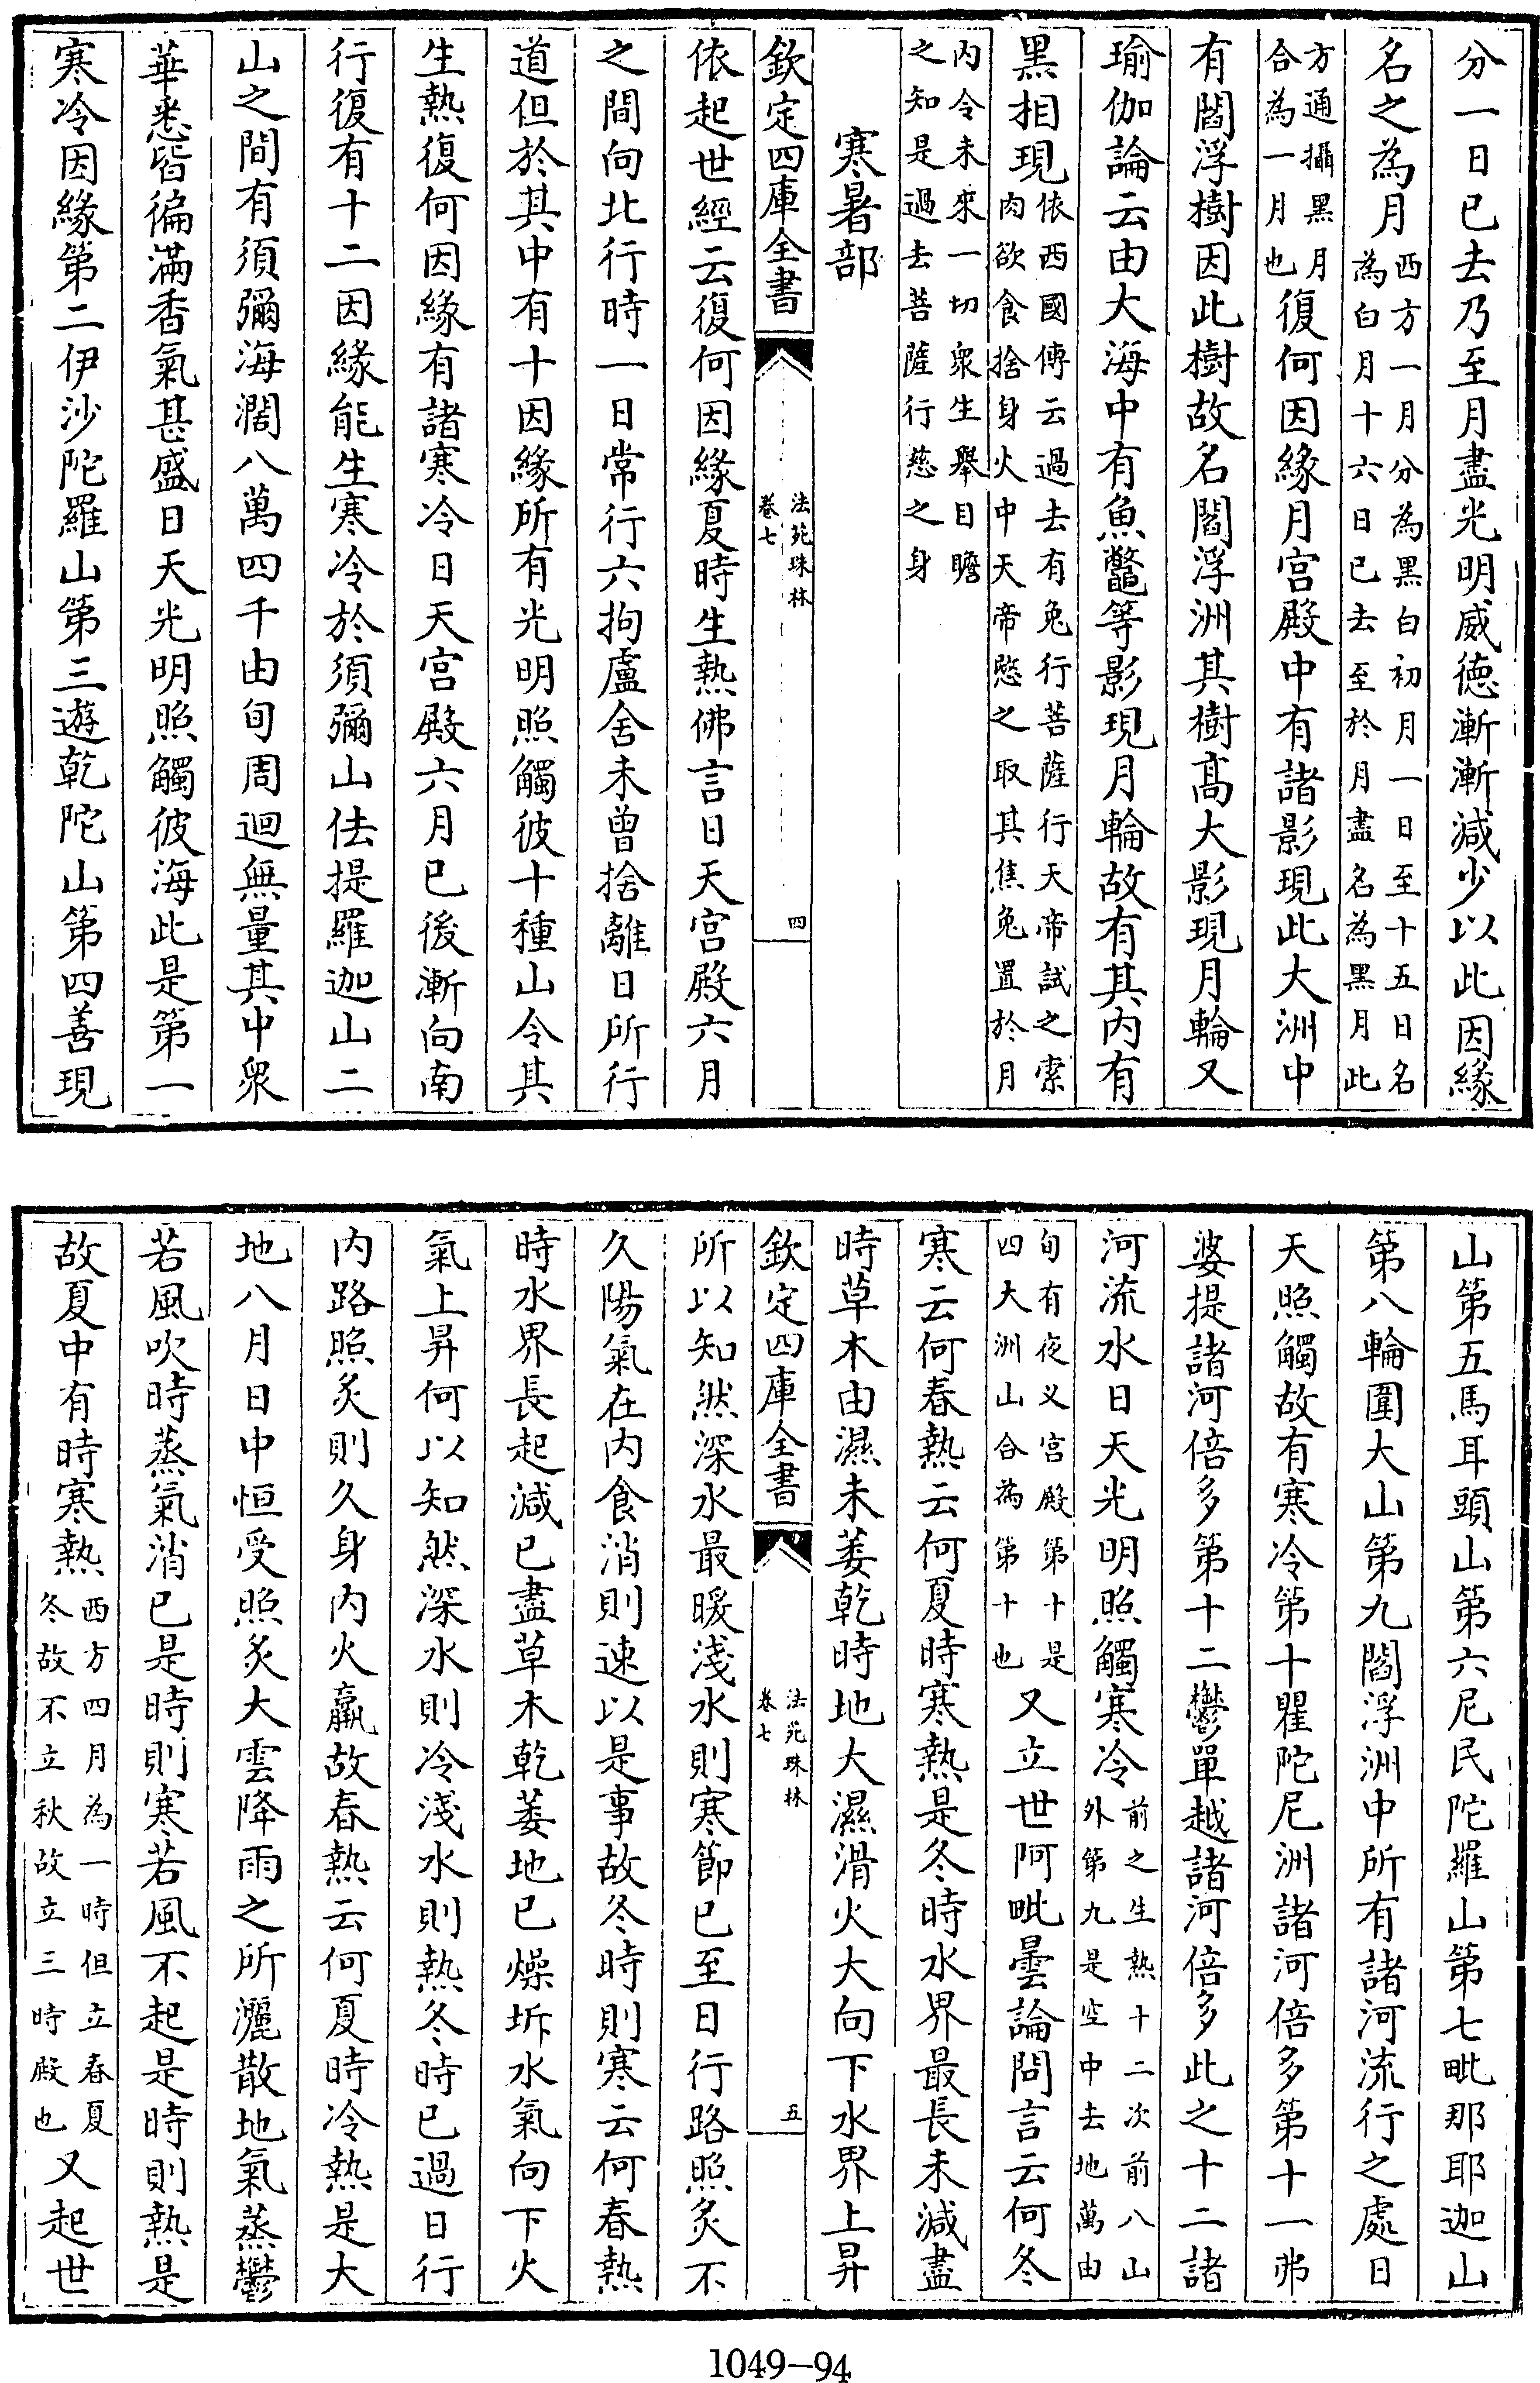 分一日已去乃至月盡光明威徳漸漸減少以此因緣
名之為月西方一月分為黑白初月一日至十五日名為白月十六日已去至於月盡名為黑月此
方通攝黑月合為一月也復何因緣月宫殿中有諸影現此大洲中
有閻浮樹因此樹故名閻浮洲其樹髙大影現月輪又
瑜伽論云由大海中有魚鼈等影現月輪故有其内有
黑相現依西國傳云過去有兔行菩薩行天帝試之索肉欲食捨身火中天帝愍之取其焦兔置於月
内令未來一切衆生舉目瞻之知是過去菩薩行慈之身
寒暑部
欽定四庫全書
法苑珠林
卷七
四
依起世經云復何因緣夏時生熱佛言日天宫殿六月
之間向北行時一日常行六拘盧舍未曾捨離日所行
道但於其中有十因緣所有光明照觸彼十種山令其
生熱復何因緣有諸寒冷日天宫殿六月已後漸向南
行復有十二因緣能生寒冷於須彌山佉提羅迦山二
山之間有須彌海濶八萬四千由旬周迴無量其中衆
華悉皆徧滿香氣甚盛日天光明照觸彼海此是第一
寒冷因緣第二伊沙陀羅山第三遊乾陀山第四善現
山第五馬耳頭山第六尼民陀羅山第七毗那耶迦山
第八輪圍大山第九閻浮洲中所有諸河流行之處日
天照觸故有寒冷第十瞿陀尼洲諸河倍多第十一弗
婆提諸河倍多第十二鬱單越諸河倍多此之十二諸
河流水日天光明照觸寒冷前之生熱十二次前八山外第九是空中去地萬由
旬有夜义宫殿第十是四大洲山合為第十也又立世阿毗曇論問言云何冬
寒云何春熱云何夏時寒熱是冬時水界最長未減盡
時草木由濕未萎乾時地大濕滑火大向下水界上昇
欽定四庫全書
法苑珠林
卷七
五
所以知然深水最暖淺水則寒節已至日行路照炙不
久陽氣在内食消則速以是事故冬時則寒云何春熱
時水界長起減已盡草木乾萎地已燥坼水氣向下火
氣上昇何以知然深水則冷淺水則熱冬時已過日行
内路照炙則久身内火羸故春熱云何夏時冷熱是大
地八月日中恒受照炙大雲降雨之所灑散地氣蒸鬱
若風吹時蒸氣消已是時則寒若風不起是時則熱是
故夏中有時寒熱西方四月為一時但立春夏冬故不立秋故立三時殿也又起世
1049-94